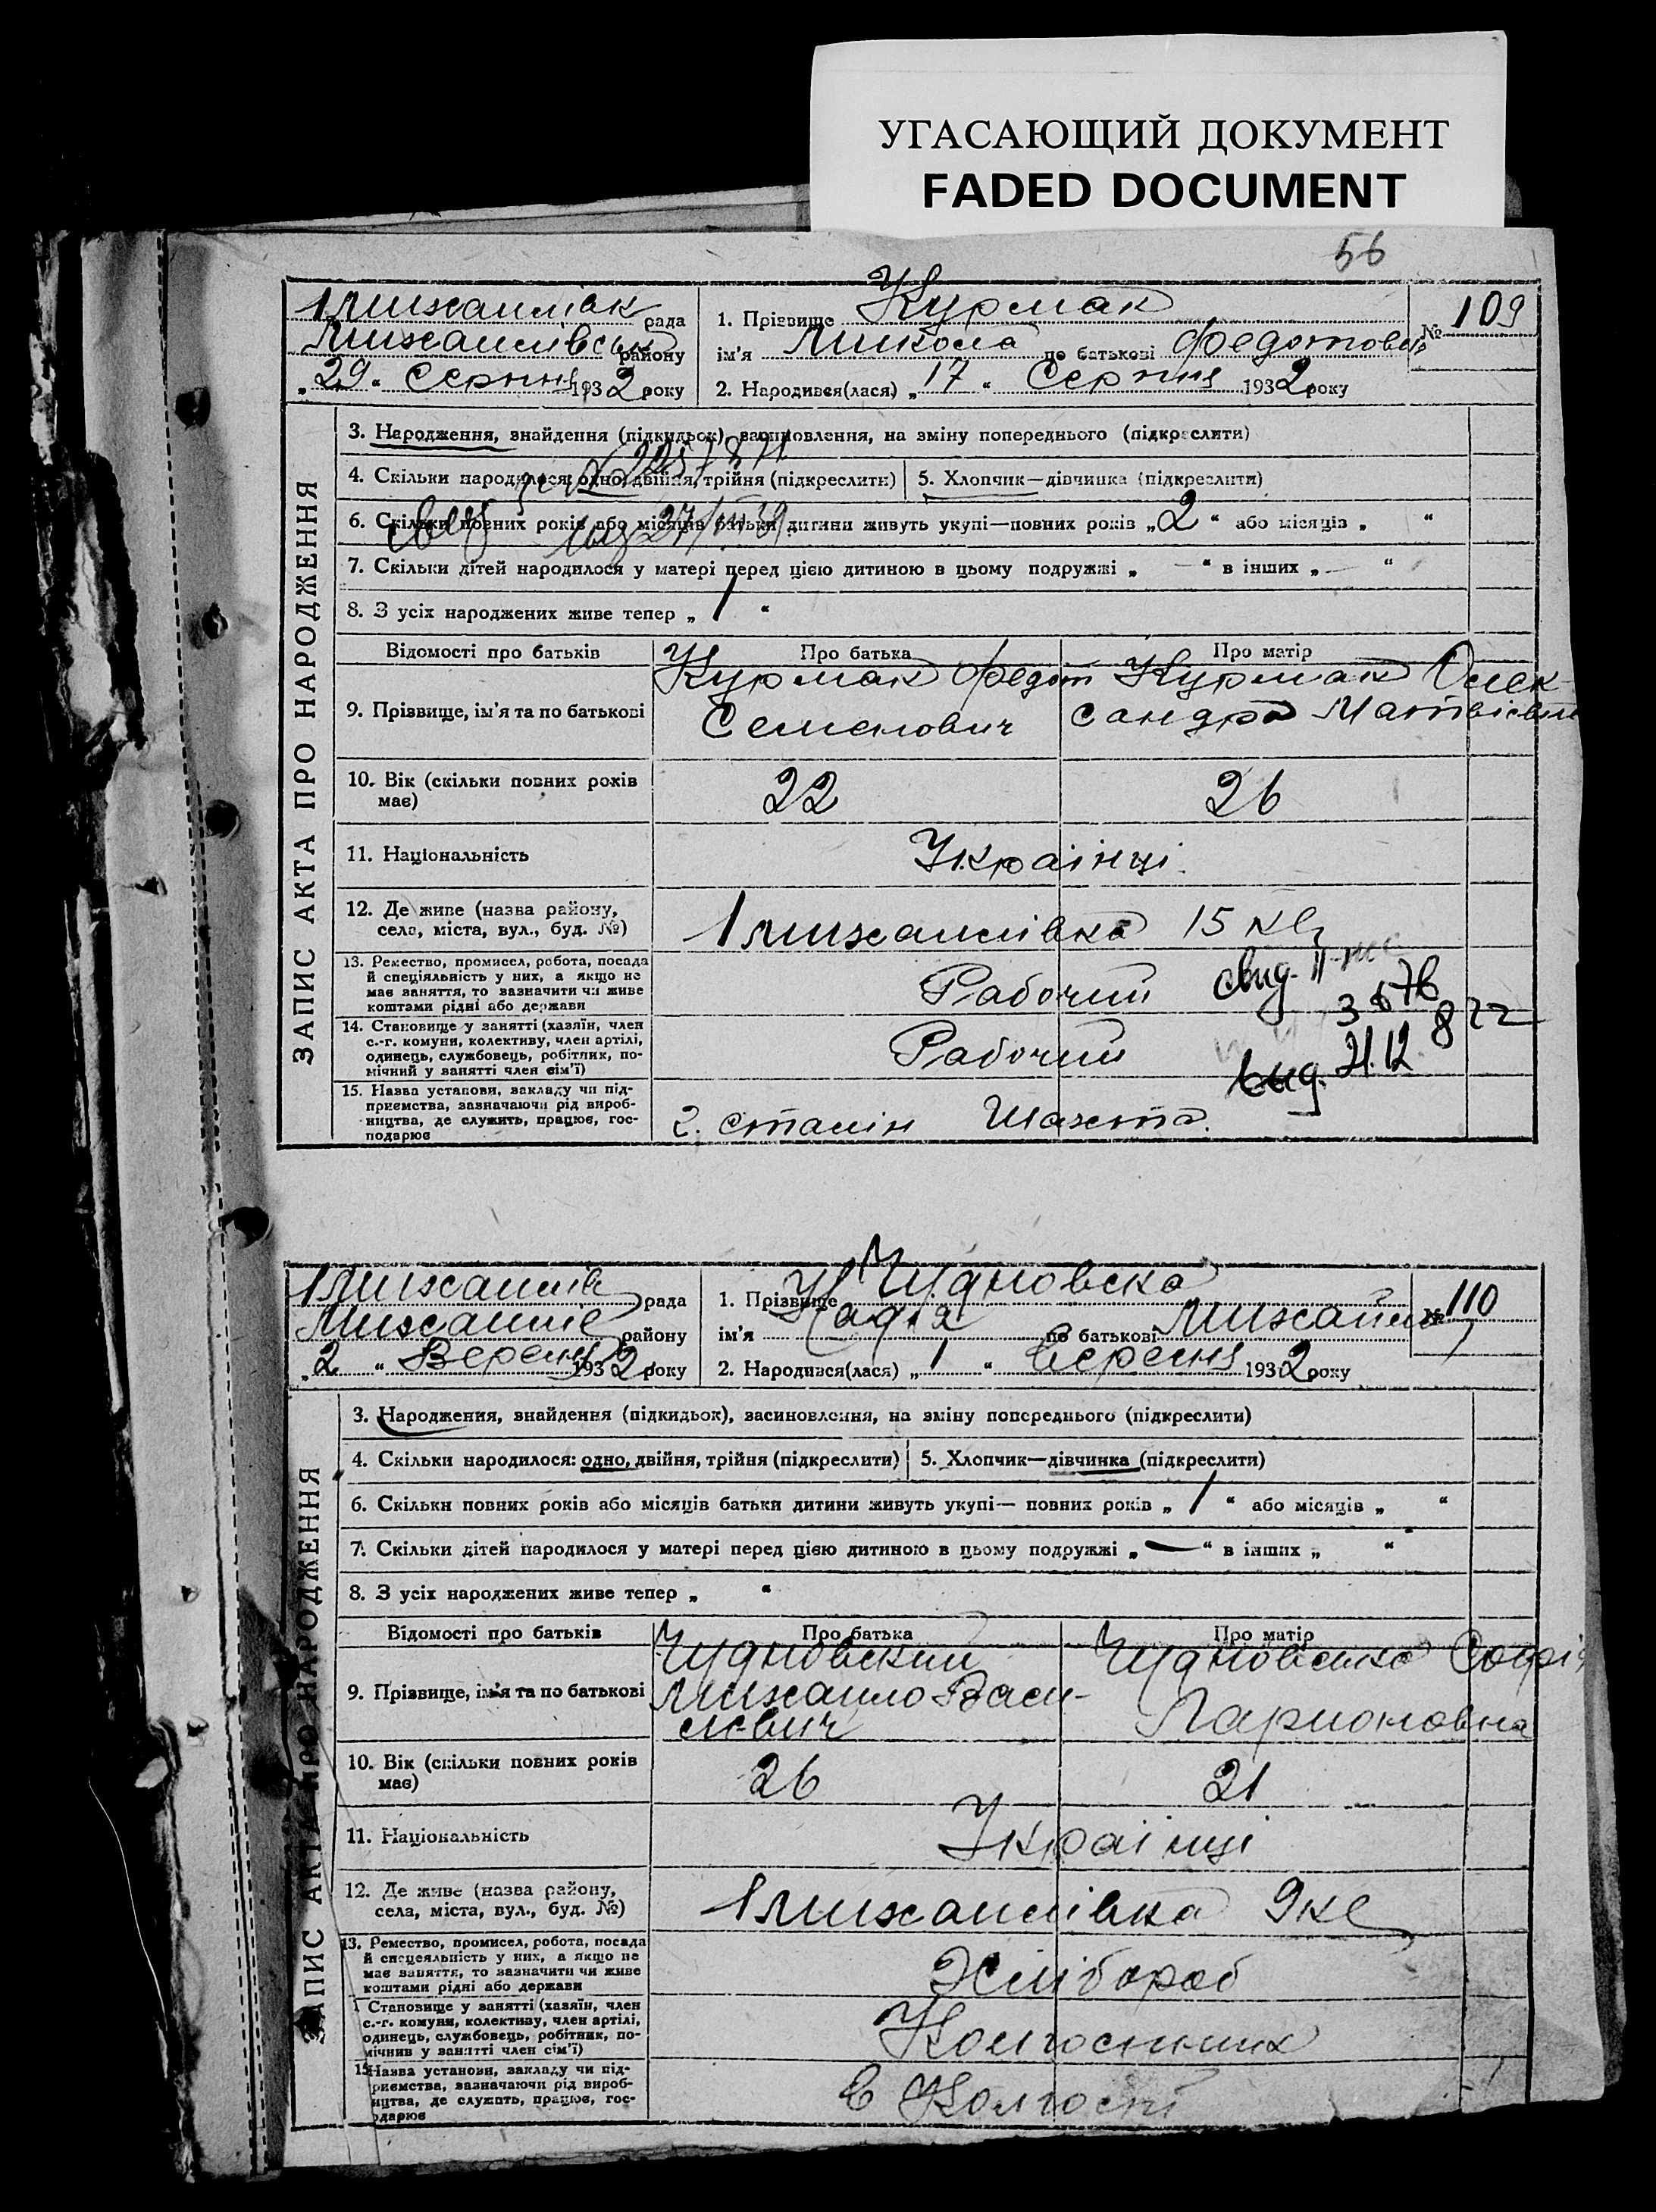 УГАСАЮЩИЙ ДОКУМЕНТ
FADED DOCUMENT
56
1 Михайлівк рада
Михайлівськ району
„29“ Серпня 1932 року
1. Прізвище Курмак
ім'я Микола по батькові Федотович
2. Народився(лася) „17“ Серпня 1932 року
№ 109
ЗАПИС АКТА ПРО НАРОДЖЕННЯ
3. Народження, знайдення (підкидьок), засиновлення, на зміну попереднього (підкреслити)
4. Скільки народилося: одно, двійня, трійня (підкреслити)
5. Хлопчик—дівчинка (підкреслити)
6. Скільки повних років або місяців батьки дитини живуть укупі—повних років „2“ або місяців „ “
7. Скільки дітей народилося у матері перед цією дитиною в цьому подружжі „—“ в інших „—“
8. З усіх народжених живе тепер „1“
Відомості про батьків
Про батька
Про матір
9. Прізвище, ім'я та по батькові
Курмак Федот
Семенович
Курмак Олек
сандра Матвієвна
10. Вік (скільки повних років
має)
22
26
11. Національність
Українці
12. Де живе (назва району,
села, міста, вул., буд. №)
1 Михайлівка 15 кв
13. Ремество, промисел, робота, посада
й спеціяльність у них, а якщо не
має заняття, то зазначити чи живе
коштами рідні або держави
Рабочий
свид. II
14. Становище у занятті (хазяїн, член
с.-г. комуни, колективу, член артілі,
одинець, службовець, робітник, по-
мічний у занятті член сім'ї)
Рабочий
822
21.12
15. Назва установи, закладу чи під-
приємства, зазначаючи рід вироб-
ництва, де служить, працює, гос-
подарює
г. Сталін Шахта.
1 Михайлів рада
Михайлів району
„2“ Вересня 1932 року
1. Прізвище Чудновська
ім'я Надія по батькові Михайло
2. Народився(лася) „1“ Вересня 1932 року
№ 110
ЗАПИС АКТА ПРО НАРОДЖЕННЯ
3. Народження, знайдення (підкидьок), засиновлення, на зміну попереднього (підкреслити)
4. Скільки народилося: одно, двійня, трійня (підкреслити)
5. Хлопчик—дівчинка (підкреслити)
6. Скільки повних років або місяців батьки дитини живуть укупі— повних років „1“ або місяців „ “
7. Скільки дітей народилося у матері перед цією дитиною в цьому подружжі „—“ в інших „ “
8. З усіх народжених живе тепер „ “
Відомості про батьків
Про батька
Про матір
9. Прізвище, ім'я та по батькові
Чудновский
Михайло Васи-
лєвич
Чудновська Софія
Ларионовна
10. Вік (скільки повних років
має)
26
21
11. Національність
Українці
12. Де живе (назва району,
села, міста, вул., буд. №)
1 Михайлівка 9 кв
13. Ремество, промисел, робота, посада
й спецеяльність у них, а якщо не
має заняття, то зазначити чи живе
коштами рідні або держави
Хлібороб
Становище у занятті (хазяїн, член
с.-г. комуни, колективу, член артілі,
одинець, службовець, робітник, по-
мічнив у занятті член сім'ї)
Колгоспник
15. Назва установи, закладу чи під-
риємства, зазначаючи рід вироб-
ництва, де служить, працює, гос-
одарює
в Колгоспі